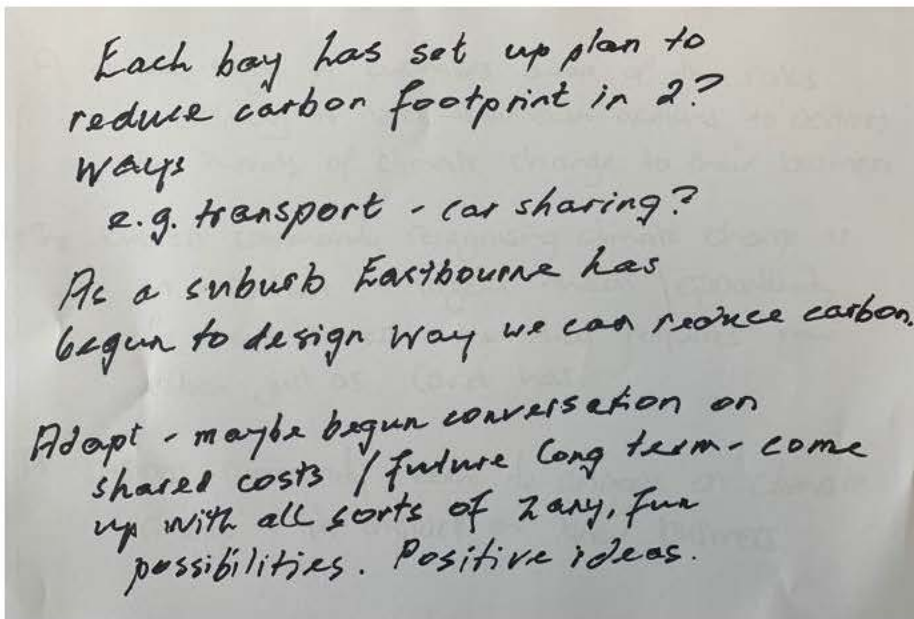 Each bay has set up plan to
reduce carbon footprint in 2?
ways
e.g. transport - car sharing?
As a suburb Eastbourne has
begun to design way we can reduce carbon.
Adapt - maybe begun conversation on
shared costs / future long term - come
up with all sorts of zany, fun
possibilities. Positive ideas.